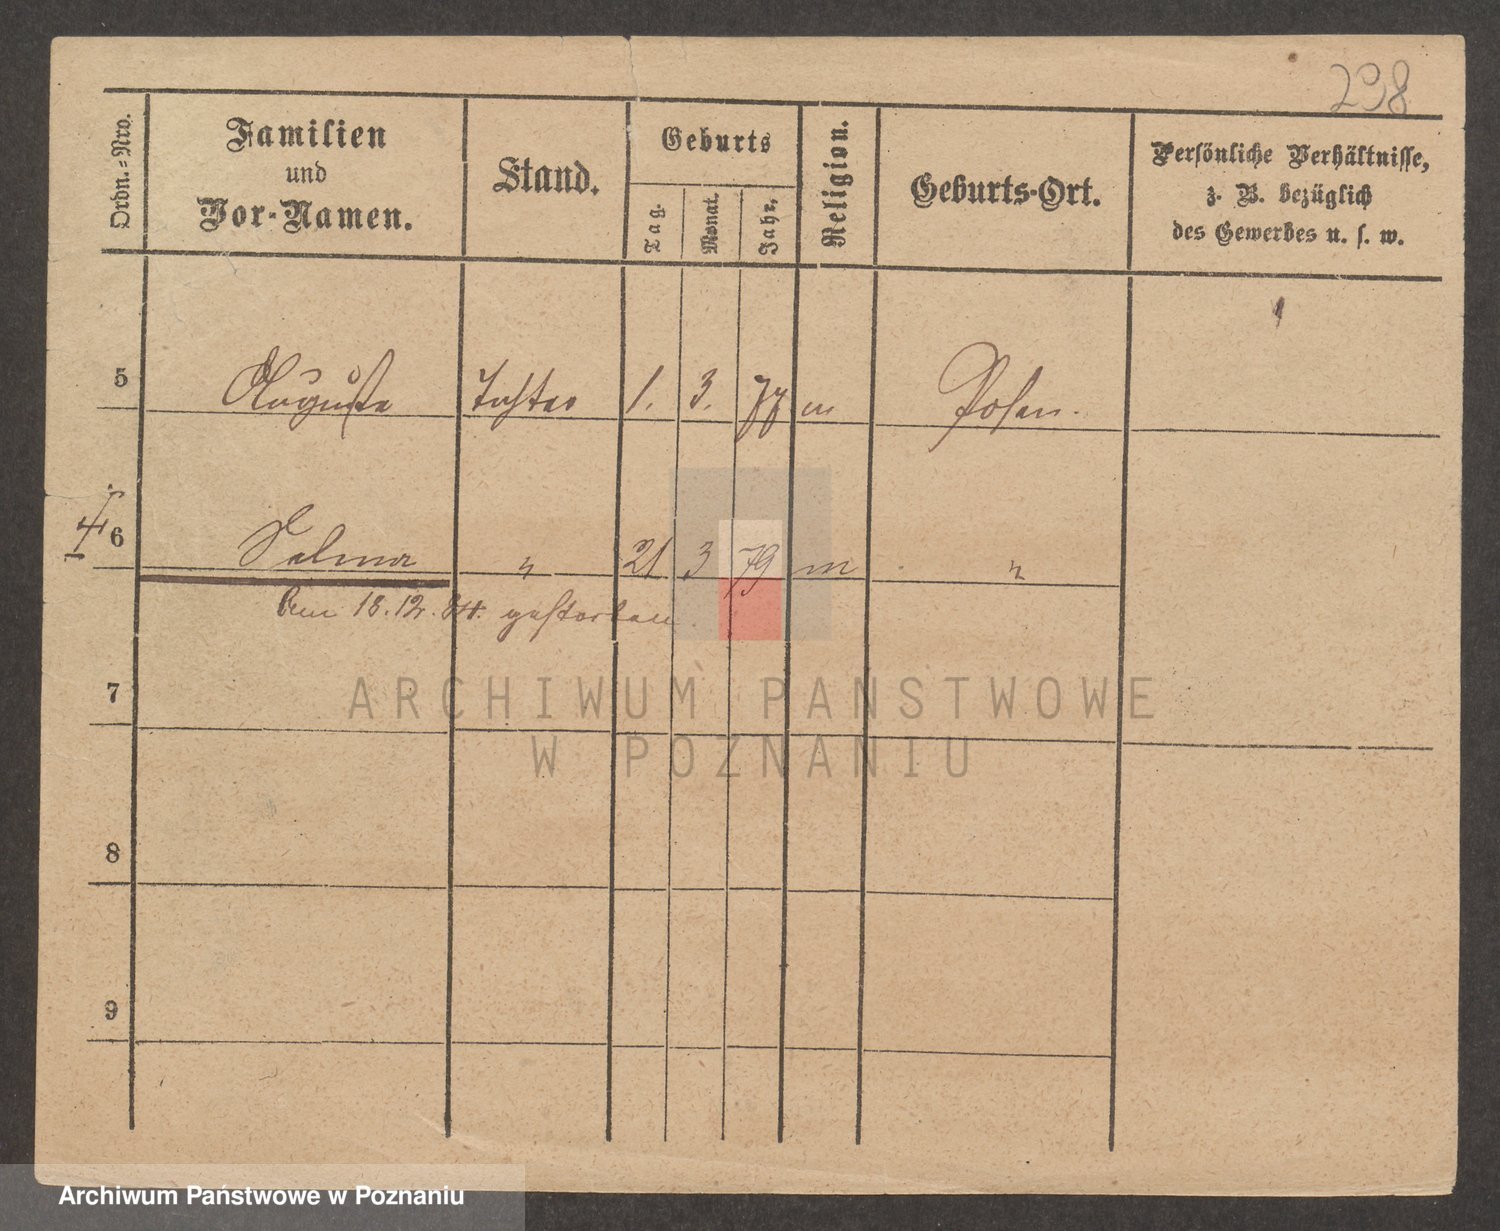 298
Ordn.-Nro.
Familien
und
Vor-Namen.
Stand.
Geburts
Tag.
Monat.
Jahr.
Religion.
Geburts-Ort.
Persönliche Verhältnisse,
z. B. bezüglich
des Gewerbes u. s. w.
5 Auguste Tochter 1. 3. 77 m Posen.
6 Selma " 21 3 79 m "
18. 12. 84. gestorben.
7
8
9
ARCHIWUM PAŃSTWOWE
W POZNANIU
Archiwum Państwowe w Poznaniu